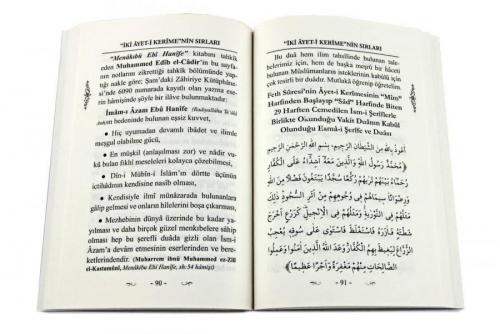 "İKİ ÂYET-İ KERİME"NİN SIRLARI
"Menâkıbü Ebî Hanîfe" kitabını tahkik
eden Muhammed Edîb el-Câdir'in bu sayfa-
nın notlarını zikrettiği tahkik bölümünde yaptığı
nakle göre; Şam'daki Zâhiriye Kütüphâne-
si'nde 6090 numarada kayıtlı olan yazma eser-
in hâmişinde şöyle bir ilâve bulunmaktadır:
İmâm-ı Âzam Ebû Hanîfe (Radıyallâhu Te'âlâ
Anh)ın bedeninde bulunan eşsiz kuvvet,
• Hiç uyumadan devamlı ibâdet ve ilimle
meşgul olabilmesi,
• En müşkil (anlaşılması zor) ve nâdir vu-
kû bulan fıkhî meseleleri kolayca çözebilmesi,
• Dîn-i Mübîn-i İslâm'ın dörtte üçünün
içtihadının kendisine nasib olması,
• Kendisiyle ilmî münâzarada bulunanlara
gâlip gelmesi ve onların hilelerini boşa çıkarması,
• Mezhebinin dünyâ üzerinde bu kadar ya-
yılması ve daha birçok güzel menkıbelere sâhip
olması hep bu şerefli duâda gizli olan İsm-i
Âzama devâm etmesinin eserlerinden ve bere-
ketlerindendir. (Muharrem ibnü Muhammed ez-Zîlî
el-Kastamûnî, Menâkıbu Ebî Hanîfe, sh:54 hâmişi)
- 90 -
"İKİ ÂYET-İ KERİME"NİN SIRLARI
Bu duâ hem ilim tahsilinde bulunan tale-
belerimiz için, hem de başka meşrû bir hâceti
bulunan Müslümanların isteklerinin kabûlü için
çok tesirli bir duâdır. Mutlakâ öğrenip okuyalım.
Feth Sûresi'nin Âyet-i Kerîmesinin "Mîm"
Harfinden Başlayıp "Sâd" Harfinde Biten
29 Harften Cemedilen İsm-i Şeriflerle
Birlikte Okunduğu Vakit Duânın Kabûl
Olunduğu Esmâ-i Şerîfe ve Duâsı
أَعُوذُ بِاللّٰهِ مِنَ الشَّيْطَانِ الرَّجِيمِ، بِسْمِ اللّٰهِ الرَّحْمٰنِ الرَّحِيمِ
﴿مُحَمَّدٌ رَسُولُ اللّٰهِ وَالَّذِينَ مَعَهُ أَشِدَّاءُ عَلَى الْكُفَّارِ
رُحَمَاءُ بَيْنَهُمْ تَرَاهُمْ رُكَّعًا سُجَّدًا يَبْتَغُونَ فَضْلًا مِنَ اللّٰهِ
وَرِضْوَانًا سِيمَاهُمْ فِي وُجُوهِهِمْ مِنْ أَثَرِ السُّجُودِ ذٰلِكَ
مَثَلُهُمْ فِي التَّوْرَاةِ وَمَثَلُهُمْ فِي الْإِنْجِيلِ كَزَرْعٍ أَخْرَجَ
شَطْأَهُ فَآزَرَهُ فَاسْتَغْلَظَ فَاسْتَوَى عَلَى سُوقِهِ يُعْجِبُ
الزُّرَّاعَ لِيَغِيظَ بِهِمُ الْكُفَّارَ وَعَدَ اللّٰهُ الَّذِينَ آمَنُوا وَعَمِلُوا
الصَّالِحَاتِ مِنْهُمْ مَغْفِرَةً وَأَجْرًا عَظِيمًا﴾
- 91 -